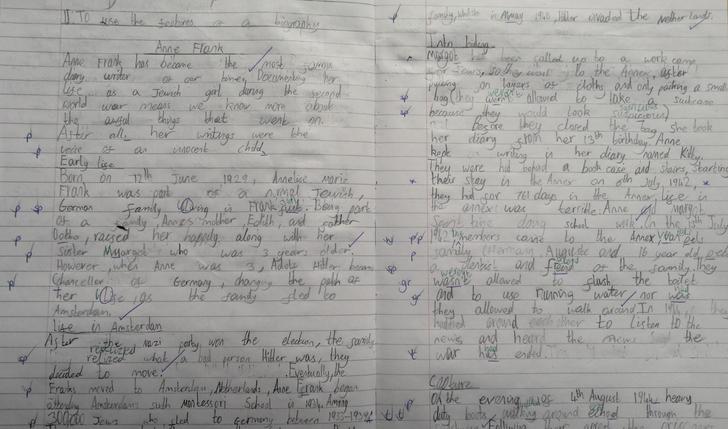 TO use the features of a biography
Anne Frank
Anne Frank has become the most famous
diary writer of our time, Documenting her
life as a Jewish girl during the second
world war means we know more about
the awful things that went on.
After all, her writings were the
were of an innocent child.
Early life
Born on 12th June 1929, Annelise Marie
Frank was part of a normal Jewish,
German family, living in Frankfurt. Being part
of a family, Anne's mother Edith, and father
Ootho, raised her happily along with her
Sister Margot who was 3 years older.
However, when Anne was 3, Adolf Hitler became
Chancellor of Germany, changing the path of
her life as the family fled to
Amsterdam.
Life in Amsterdam
After the nazi party won the election, the family
realised what a bad person Hitler was, they
decided to move. Eventually, the
Franks moved to Amsterdam, Netherlands, Anne Frank began
attending Amsterdams sixth Montessori School in 1934. Among
300,000 Jews who fled to Germany between 1933-1939
family, whilst in May 1940, Hitler invaded the Netherlands.
Into hiding
Margot had been called up to a work camp
to the Annex, after
putting on layers of cloths and only packing a small
bag (they weren't allowed to take a suitcase
because they would look suspicious)
Before they closed the bag she took
her diary from her 13th birthday. Anne
kept on writing in her diary named Kitty.
They were hid behind a book case and stairs, starting
their stay in the Annex on 6th July, 1942,
they hid for 761 days in the Annex, life in
the annex was terrible. Anne and Margot
spent time doing school work. On the 13th July
1942 members came to the Annex Van pels
family (Hermann, Auguste and 16 year old
a dentist and friend of the family. they
wasn't allowed to flush the toilet
and to use running water nor was
they allowed to walk around. In
huddled around each other to listen to the
news and heard the news said the
war had ended.
Capture
On the evening of 4th August 1944 heavy
duty boots walking around echoed through the
Following